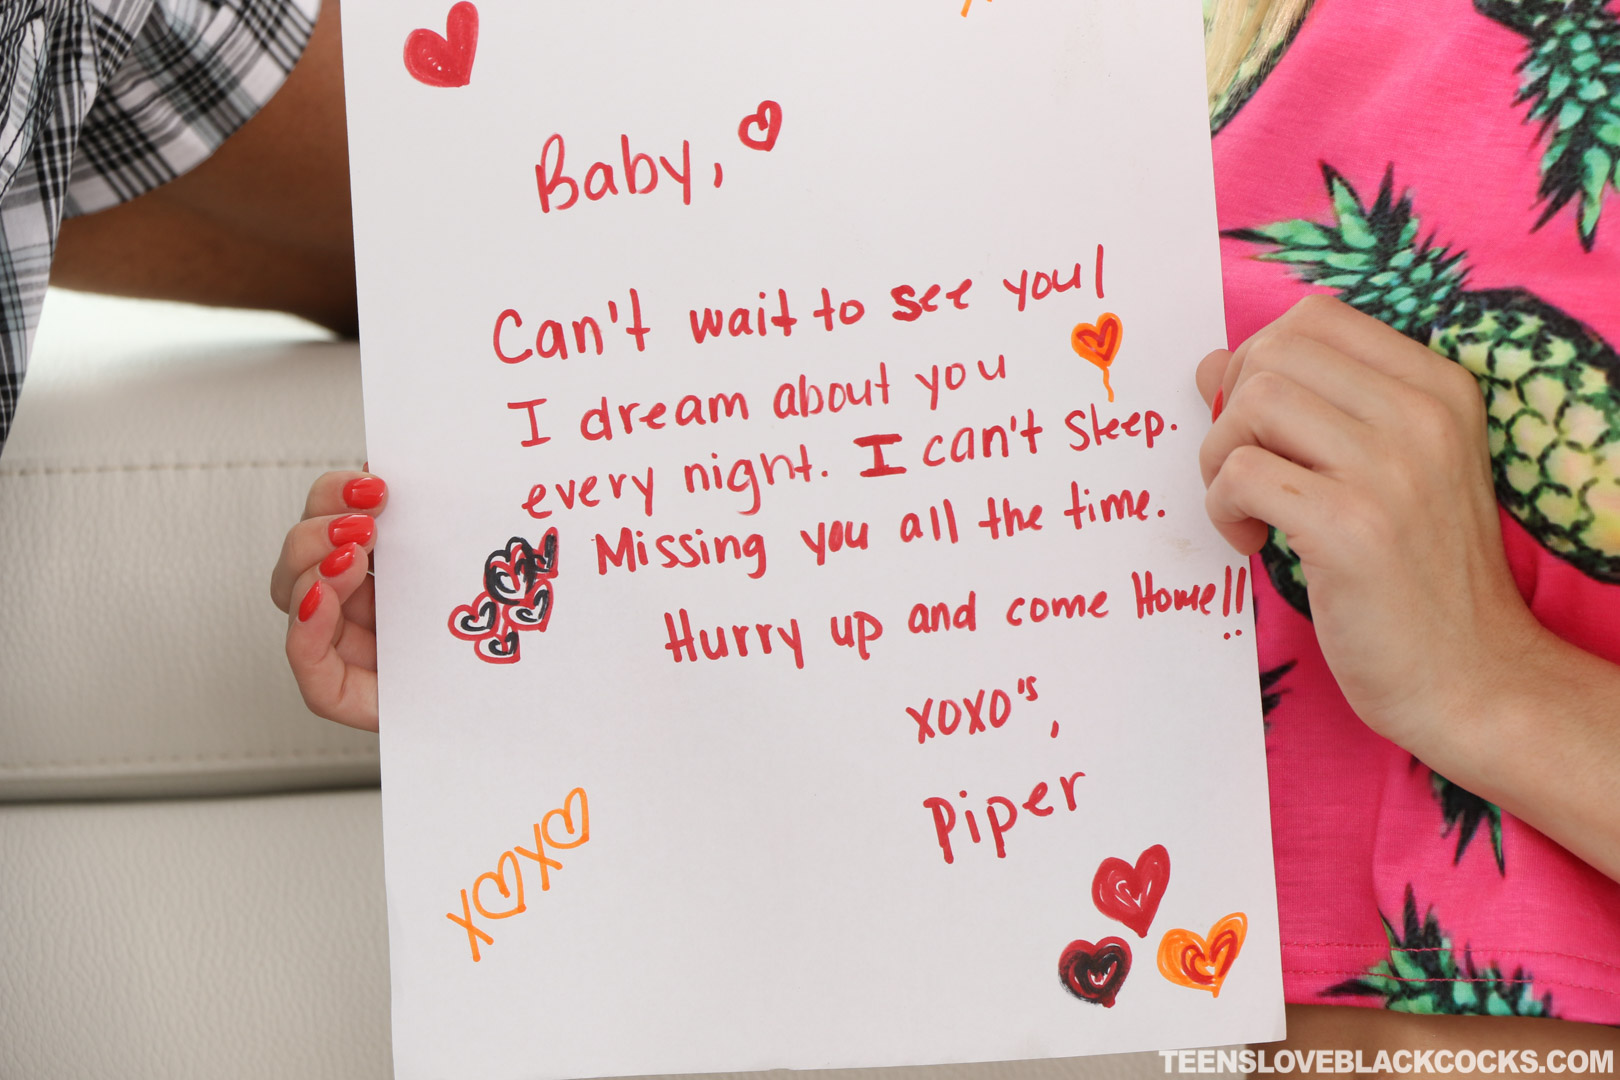 Baby,
Can't wait to see you!
I dream about you
every night. I can't sleep.
Missing you all the time.
Hurry up and come Home!!
XOXO's,
Piper
XOXO
TEENSLOVEBLACKCOCKS.COM